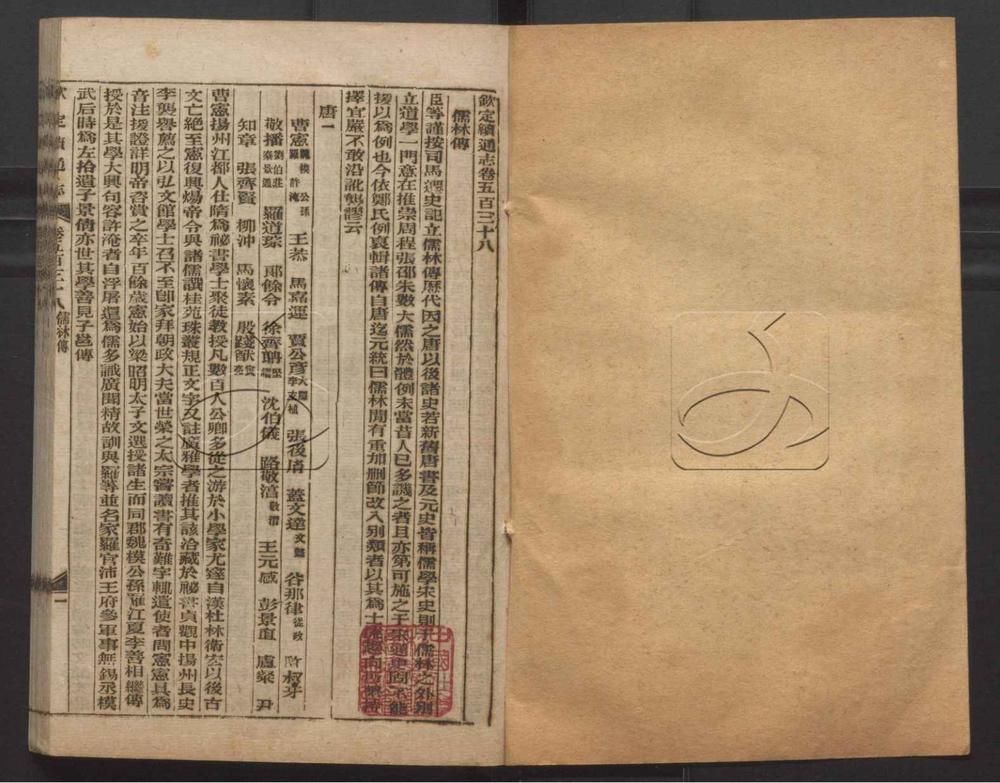 欽定續通志卷五百三十八
儒林傳
臣等謹按司馬遷史記立儒林傳歷代因之唐以後諸史若新舊唐書及元史皆稱儒學宋史則于儒林之外別
立道學一門意在推崇周程張邵朱數大儒然於體例未當昔人已多譏之者且亦第可施之于宋通史固不能
援以爲例也今依鄭氏例裒輯諸傳自唐迄元統曰儒林閒有重加刪節改入別類者以其爲士
擇宜嚴不敢沿訛襲謬云
唐一
曹憲 魏模 公孫羅 許淹 王恭 馬嘉運 賈公彥 大隱 李玄植 張後廕 蓋文達 文懿 谷那律 從政
敬播 劉伯莊 秦景通 羅道琮 郎餘令 徐齊聃 堅 沈伯儀 路敬淳 敬潛 王元感 彭景直 盧粲 尹
知章 張齊賢 柳沖 馬懷素 殷踐猷 寅 亮
曹憲揚州江都人仕隋爲祕書學士聚徒教授凡數百人公卿多從之游於小學家尤邃自漢杜林衛宏以後古
文亡絕至憲復興煬帝令與諸儒譔桂苑珠叢規正文字又註廣雅學者推其該洽藏於祕書貞觀中揚州長史
李襲譽薦之以弘文館學士召不至卽家拜朝政大夫當世榮之太宗嘗讀書有奇難字輒遣使者問憲憲具爲
音注援證詳明帝咨賞之卒年百餘歲憲始以梁昭明太子文選授諸生而同郡魏模公孫羅江夏李善相繼傳
授於是其學大興句容許淹者自浮屠還爲儒多識廣聞精故訓與羅等並名家羅官沛王府參軍事無錫丞模
武后時爲左拾遺子景倩亦世其學善見子邕傳
欽定續通志 卷五百三十八 儒林傳 一